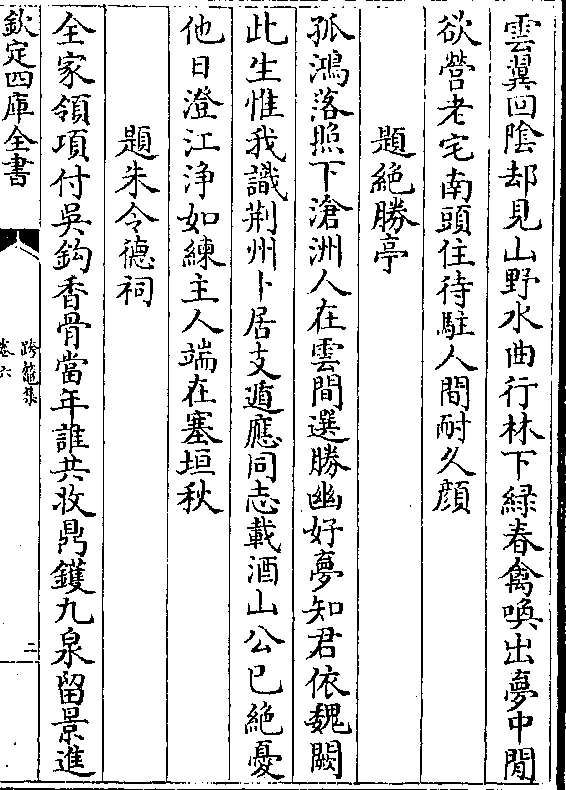 雲巢回陰却見山野水曲行林下緑春禽喚出夢中閒
欲營老宅南頭住待駐人間耐久顔
題絶勝亭
孤鴻落照下滄洲人在雲間選勝幽好夢知君依魏闕
此生惟我識荆州卜居支遁應同志載酒山公已絶憂
他日澄江浄如練主人端在塞垣秋
題朱令徳祠
全家領項付吳鈎香骨當年誰共收鼎鑊九泉留景進
欽定四庫全書
跨鼇集
卷六
二